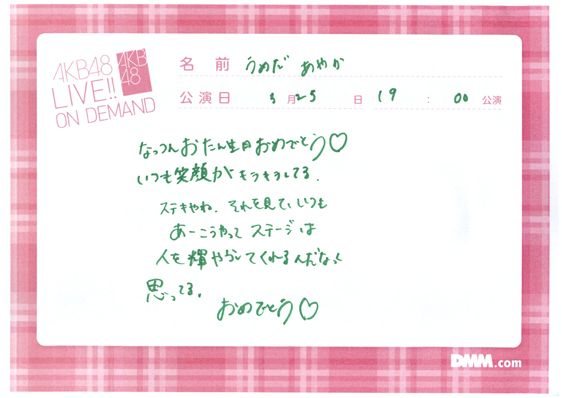 AKB48
LIVE!!
ON DEMAND
AKB
48
名前 うめだ あやか
公演日 3月25日 19:00公演
なっつん おたん生日おめでとう♡
いつも笑顔がキラキラしてる。
ステキやね、それを見て、いつも
あーこうやって ステージは
人を輝やかしてくれるんだなっと
思ってる。
おめでとう♡
DMM.com